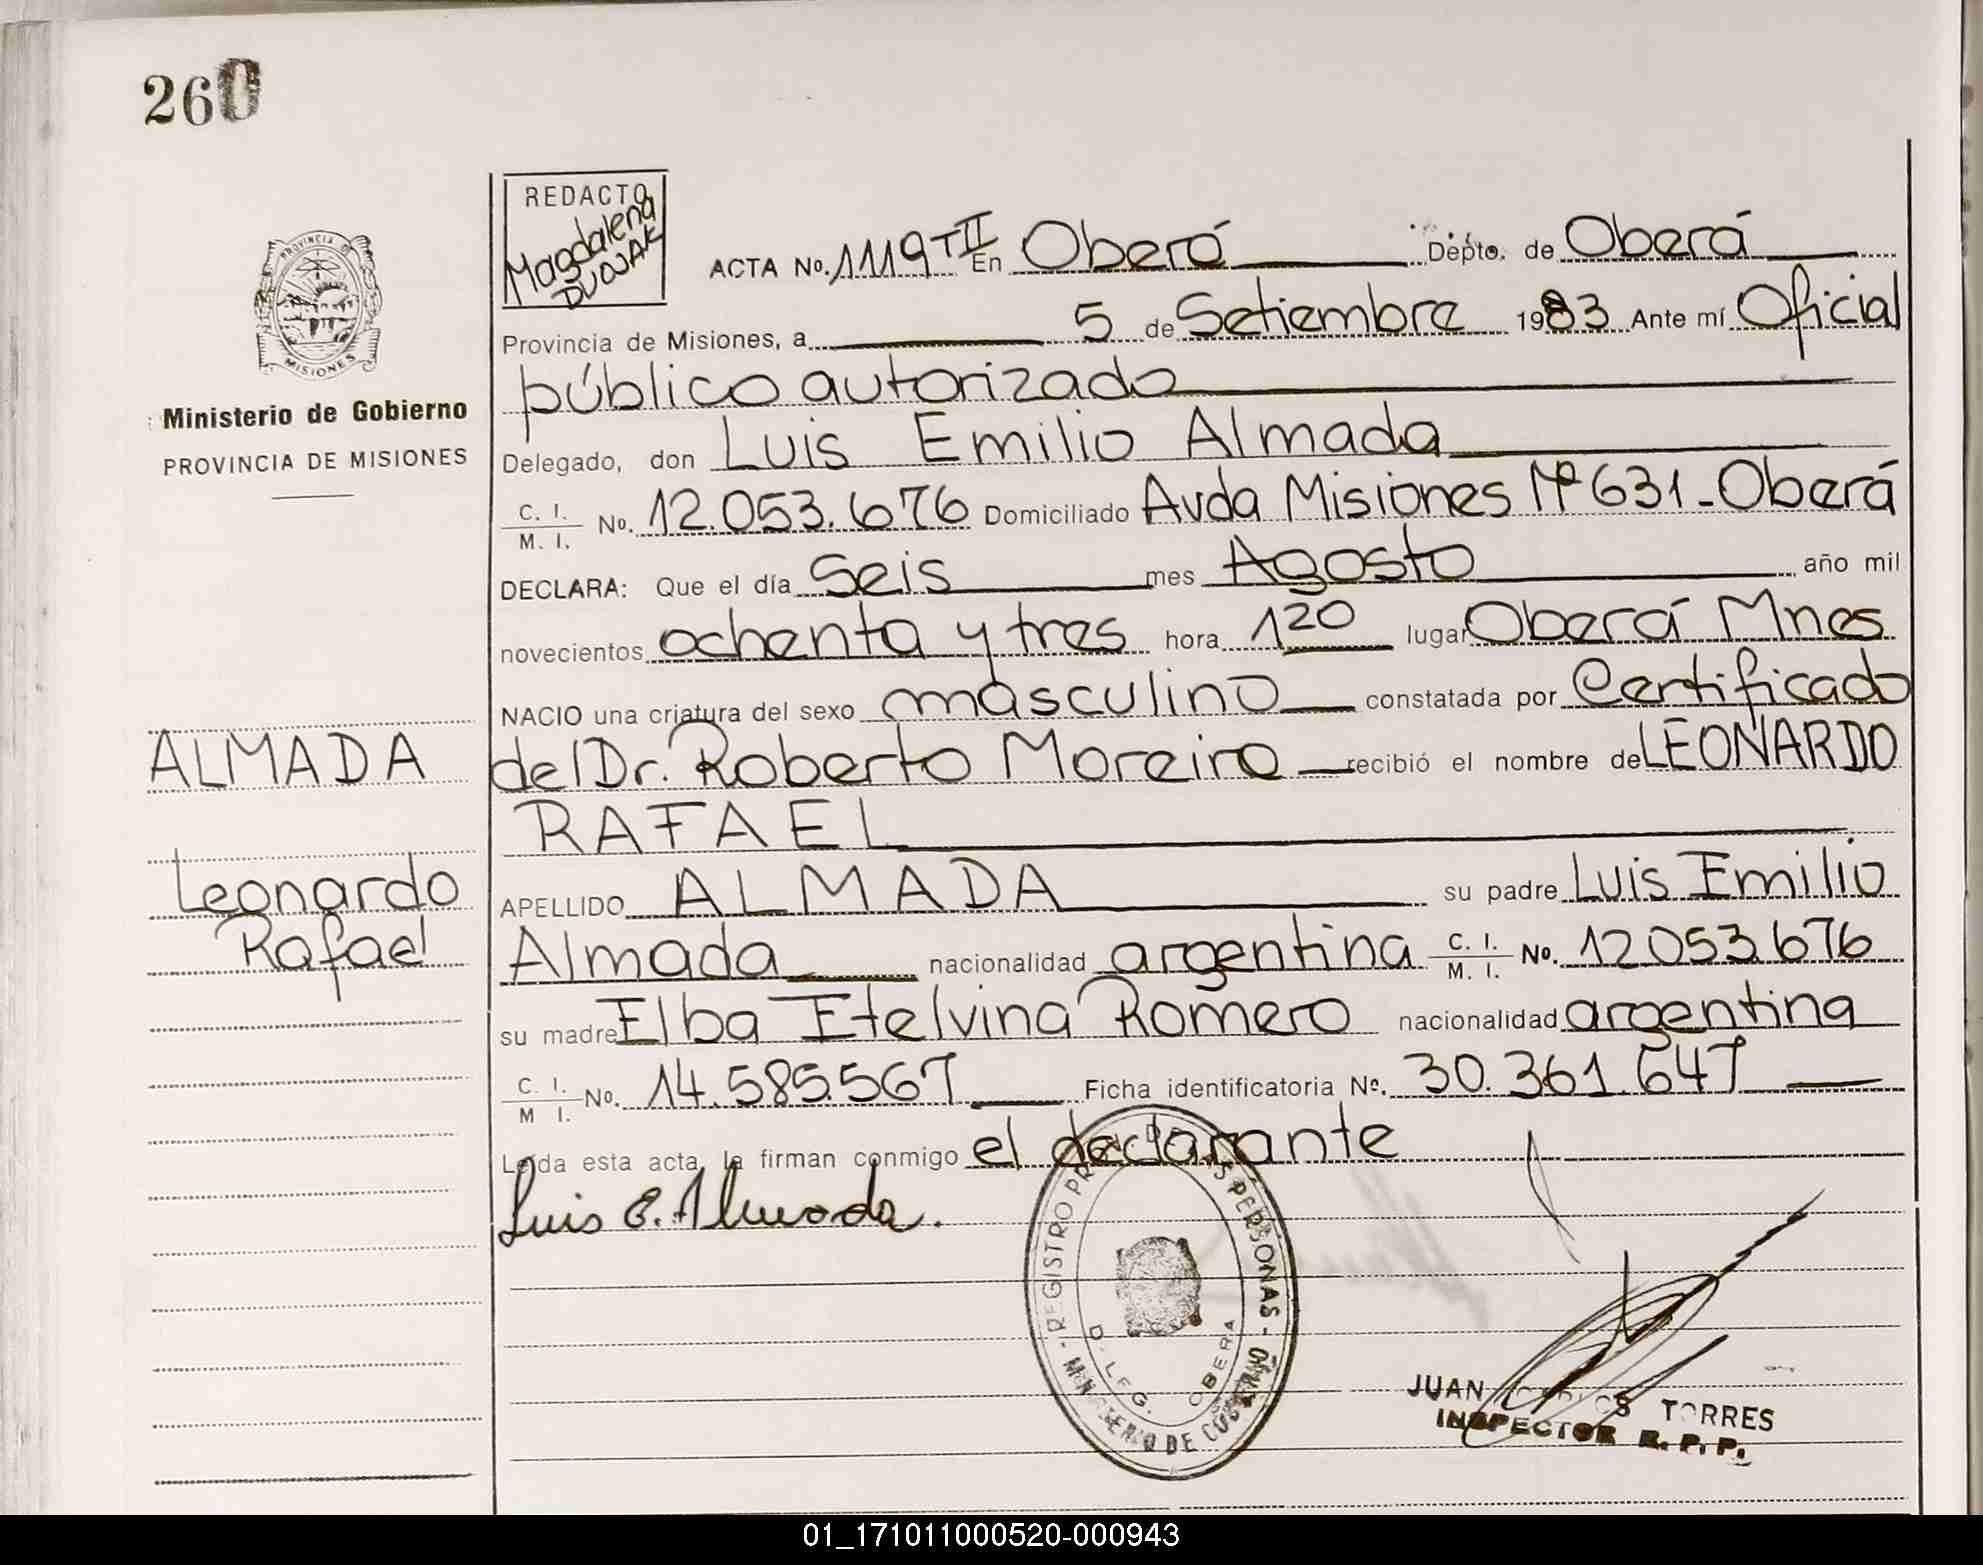 260
REDACTO
Magdalena
DUJAK
PROVINCIA DE
MISIONES
Ministerio de Gobierno
PROVINCIA DE MISIONES
ALMADA
Leonardo
Rafael
ACTA No. 1119 TII En Oberá Depto. de Oberá
Provincia de Misiones, a 5 de Setiembre 1983 Ante mí Oficial
público autorizado
Delegado, don Luis Emilio Almada
C. I. / M. I. No. 12.053.676 Domiciliado Avda Misiones Nº 631 - Oberá
DECLARA: Que el día Seis mes Agosto año mil
novecientos ochenta y tres hora 1 20 lugar Oberá Mnes
NACIO una criatura del sexo masculino constatada por Certificado
del Dr. Roberto Moreira recibió el nombre de LEONARDO
RAFAEL
APELLIDO ALMADA su padre Luis Emilio
Almada nacionalidad argentina C. I. / M. I. No. 12.053.676
su madre Elba Etelvina Romero nacionalidad argentina
C. I. / M I. No. 14.585.567 Ficha identificatoria Nº. 30.361.647
Leída esta acta, la firman conmigo el declarante
Luis E. Almada.
REGISTRO PERSONAS - MINISTERIO DE
DELEG. OBERA
JUAN CARLOS TORRES
INSPECTOR R. P. P.
01_171011000520-000943